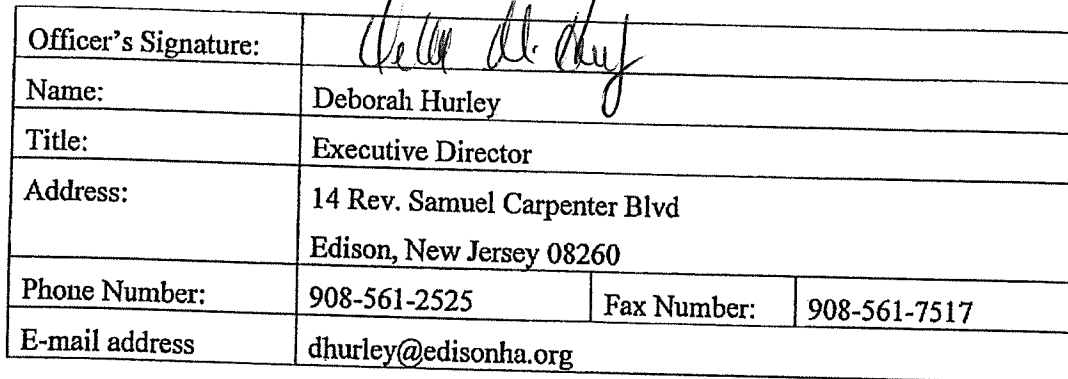 Officer's Signature:
Name: Deborah Hurley
Title: Executive Director
Address: 14 Rev. Samuel Carpenter Blvd
Edison, New Jersey 08260
Phone Number: 908-561-2525 Fax Number: 908-561-7517
E-mail address dhurley@edisonha.org